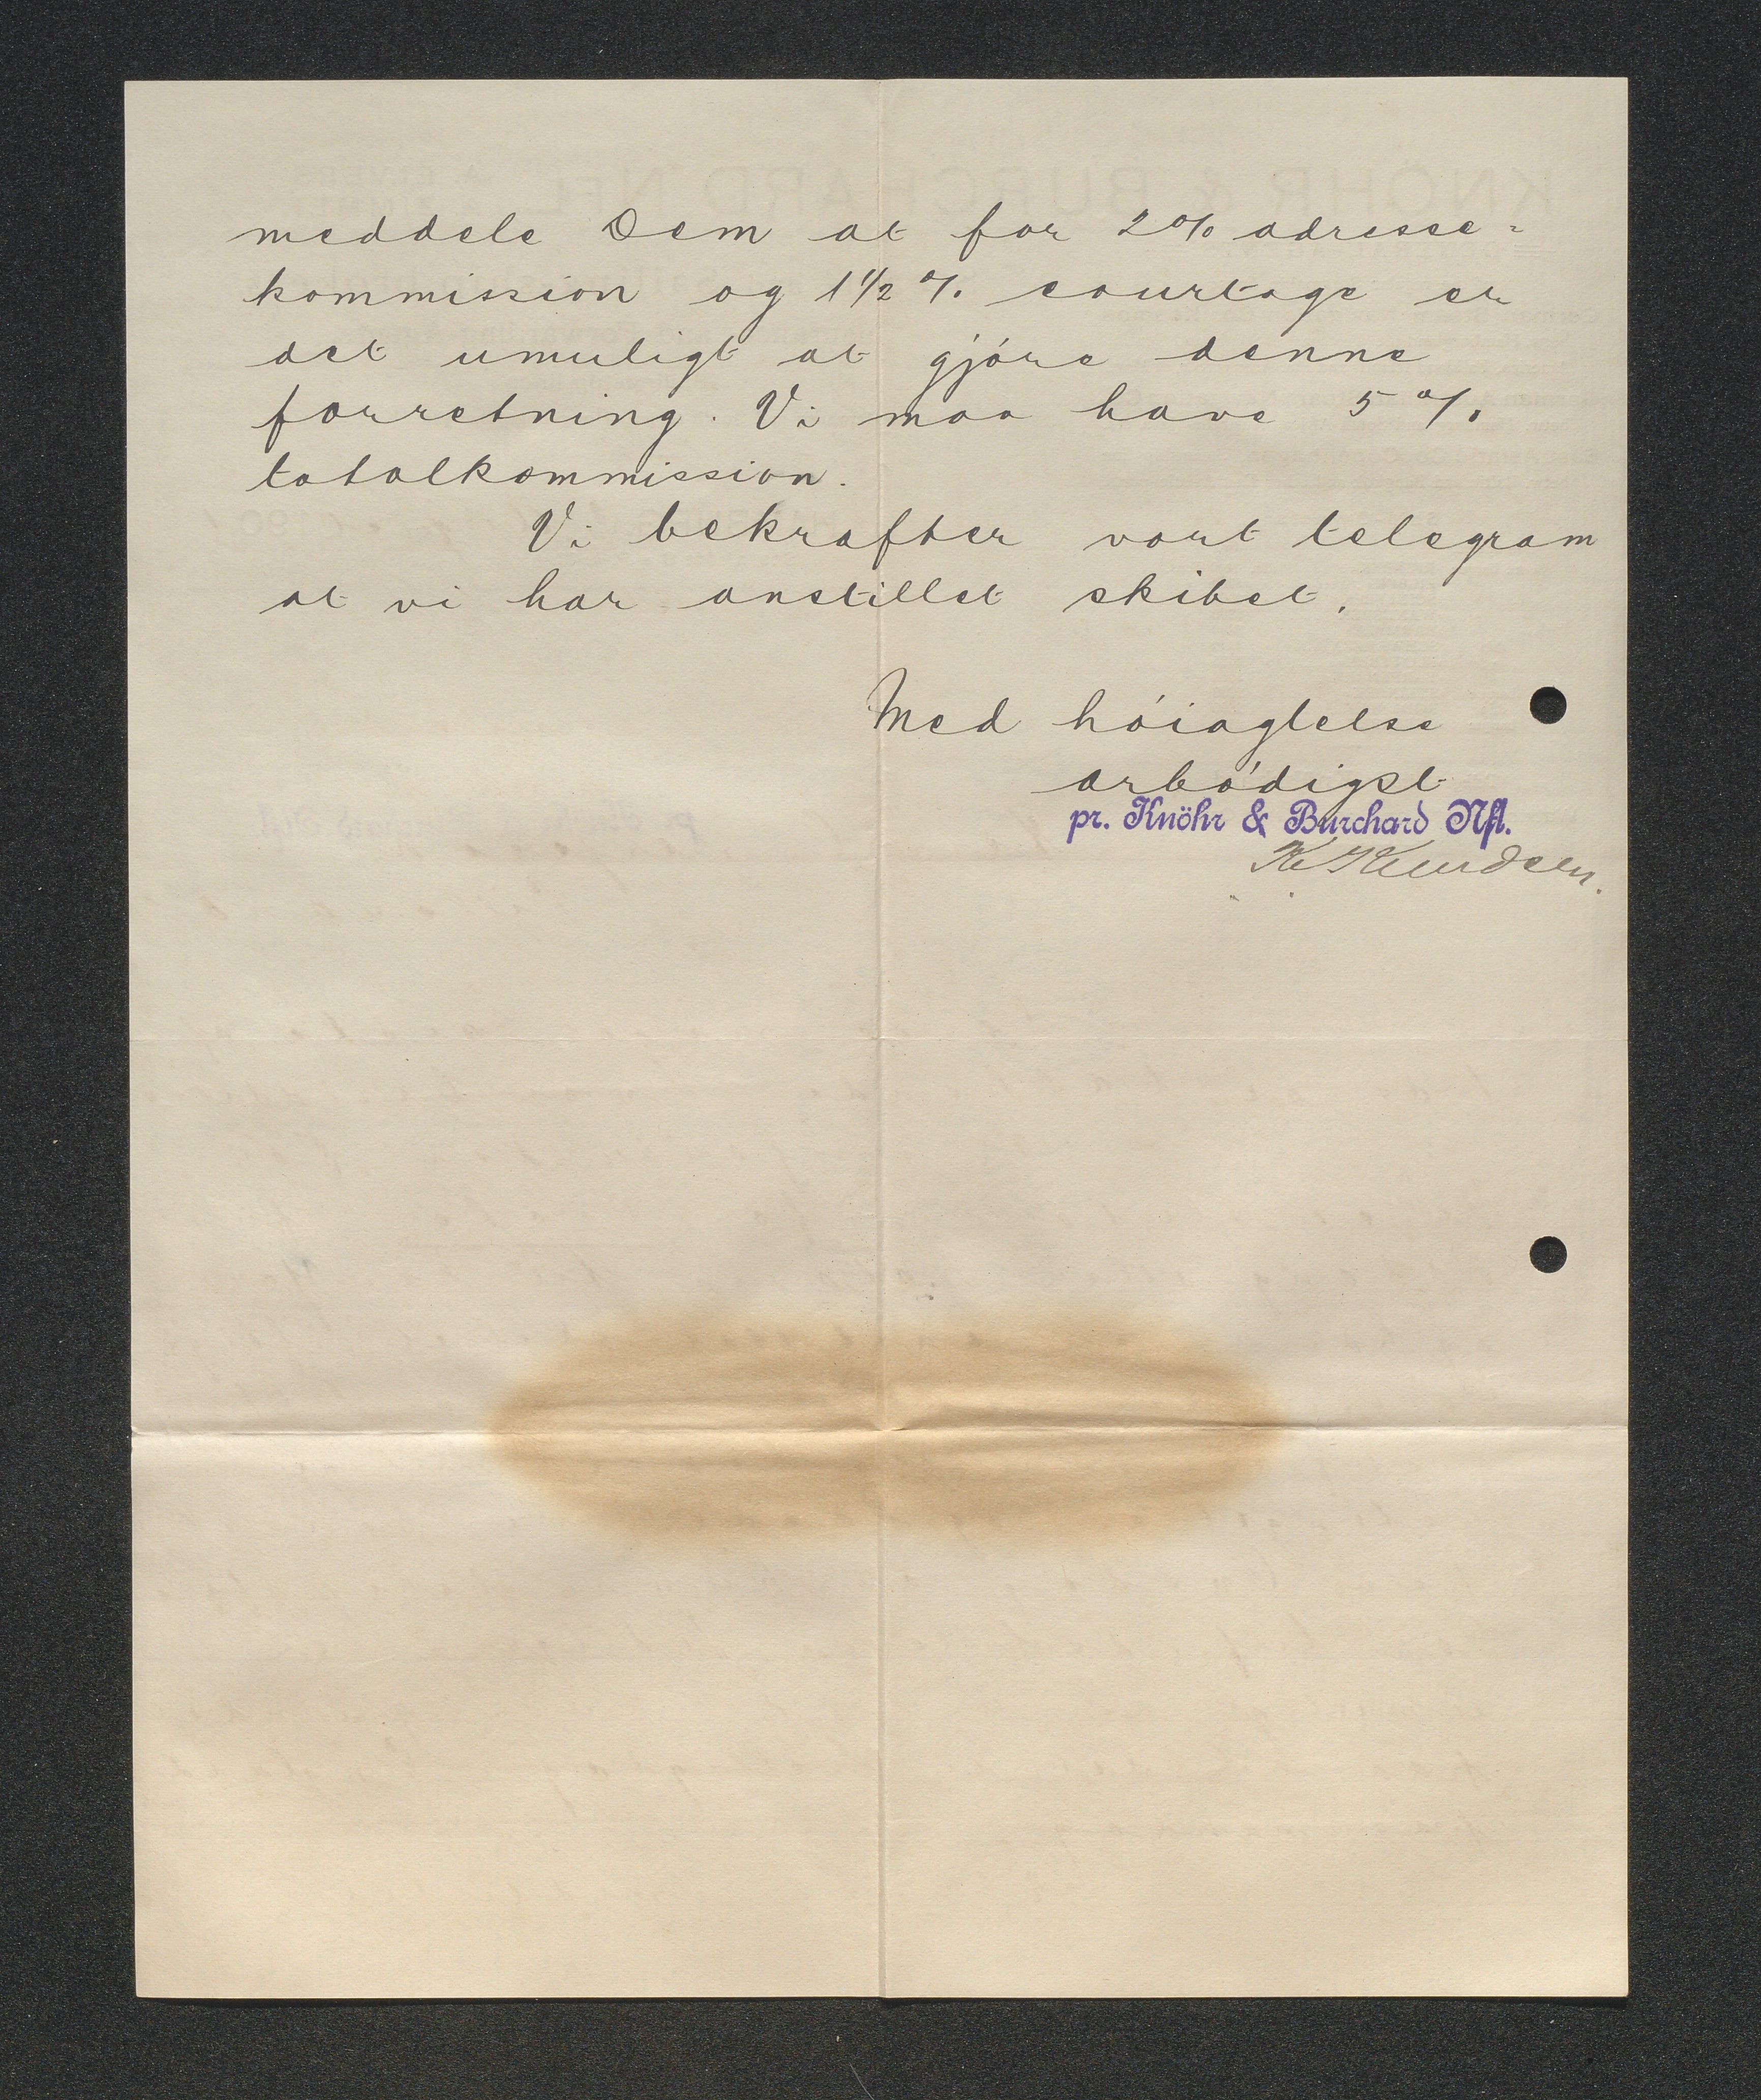 meddele Dem at for 2% adresse=
kommission og 1 1/2 % courtage er
det umuligt at gjóre denne
forretning. Vi maa have 5 %
totalkommission.
Vi bekrafter vort telegram
at vi har anstillet skibet.
Med hóiagtelse
arbódigst
pr. Knöhr & Burchard Nfl.
K Knudsen.